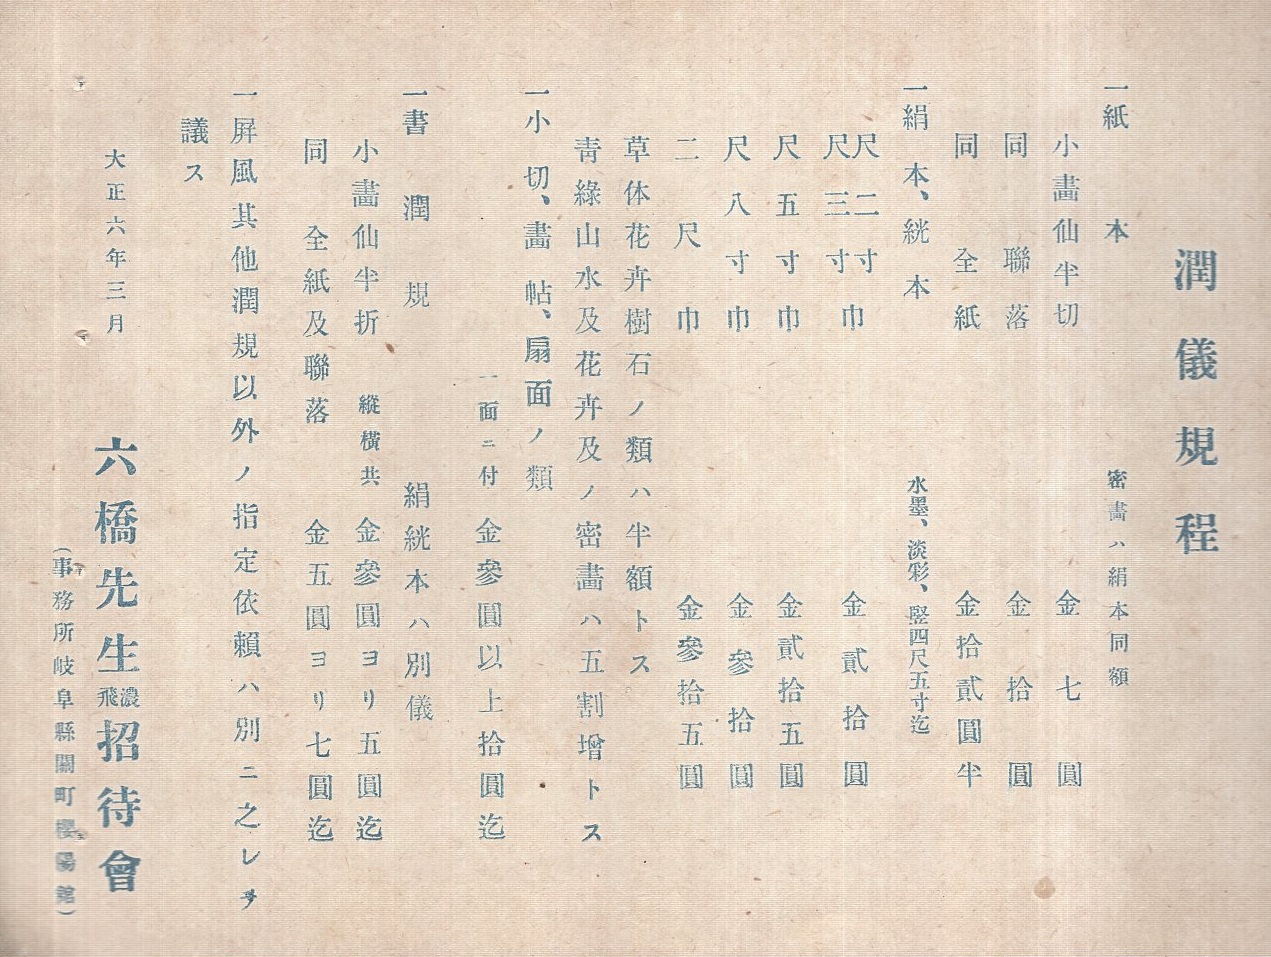 潤儀規程
一紙本 密畵ハ絹本同額
小畵仙半切 金七圓
同聯落 金拾圓
同全紙 金拾貳圓半
一絹本、絖本 水墨、淡彩、竪四尺五寸迄
尺二寸尺三寸巾 金貳拾圓
尺五寸巾 金貳拾五圓
尺八寸巾 金參拾圓
二尺巾 金參拾五圓
草体花卉樹石ノ類ハ半額トス
靑綠山水及花卉及ノ密畵ハ五割增トス
一小切、畵帖、扇面ノ類
一面ニ付 金參圓以上拾圓迄
一書潤規 絹絖本ハ別儀
小畵仙半折 縱橫共 金參圓ヨリ五圓迄
同全紙及聯落 金五圓ヨリ七圓迄
一屛風其他潤規以外ノ指定依賴ハ別ニ之レヲ
議ス
大正六年三月
六橋先生濃飛招待會
(事務所岐阜縣關町 陽館)